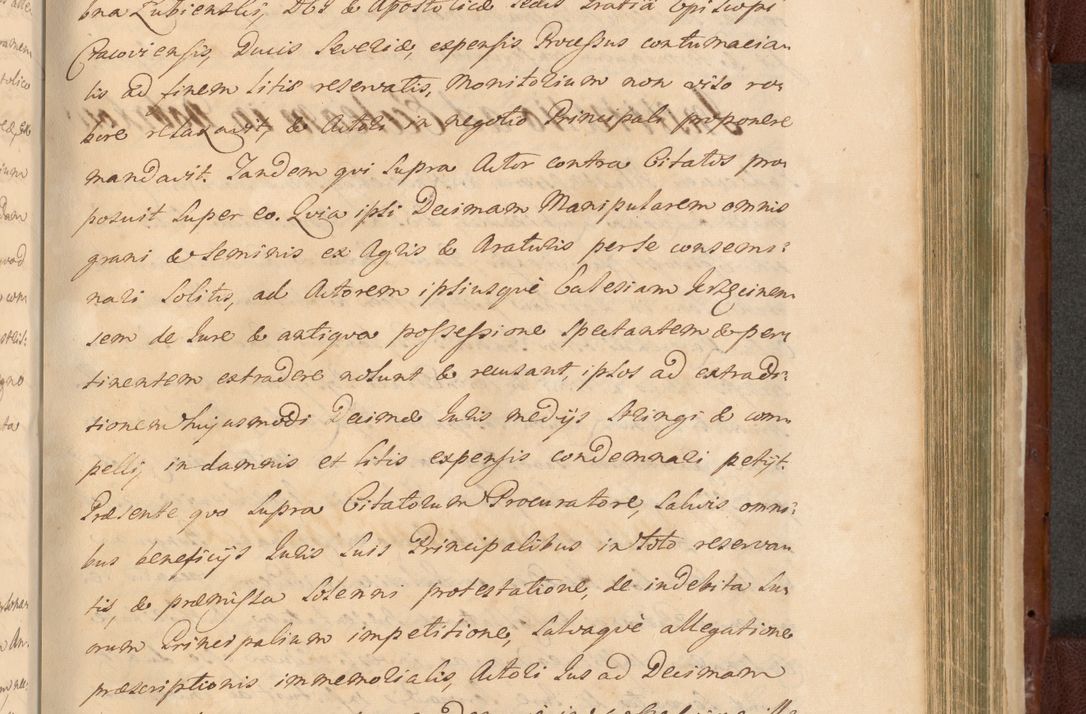 bna Zubienski, Dei & Apostolicæ Sedis Gratiâ Episcopi
Cracoviensis, Ducis Severiæ, expensis Processus contumacia-
lis ad finem litis reservatis, Monitorium non viso ro-
bore relaxavit, & Actori in negotio Principali proponere
mandavit. Tandem qvi supra Actor contra Citatos pro-
posuit super eo. Qvia ipsi Decimam Manipularem omnis
grani & seminis ex Agris & Araturis per se consemi-
nari solitis, ad Actorem ipsiusqve Ecclesiam
sem de Jure & antiqva possessione spectantem & per-
tinentem extradere nolunt & recusant, ipsos ad extradi-
tionem hujusmodi Decimæ Juris medijs stringi & com-
pelli, in damnis et litis expensis condemnari petijt.
Præsente qvo supra Citatorum Procuratore, salvis omni-
bus beneficijs Juris suis Principalibus in toto reservan-
tis, & præmissa solenni protestatione, de indebita su-
orum Principalium impetitione, salvaqve allegatione
præscriptionis immemorialis, Actori Jus ad Decimam